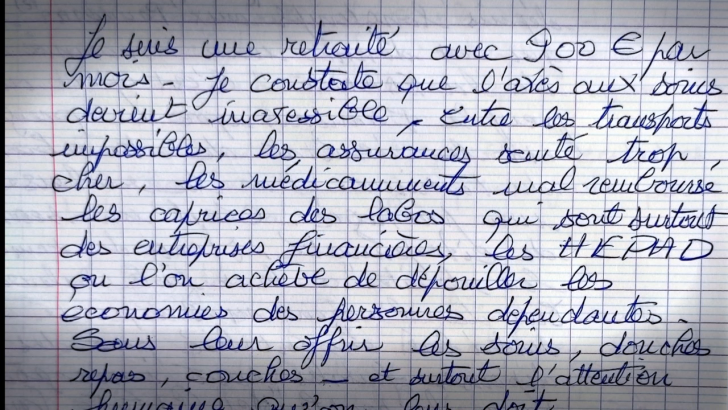 Je suis une retraité avec 900 € par
mois - Je constate que l'axès aux soins
devient inaxessible, entre les transports
impossibles, les assurances santé trop
cher, les médicamments mal remboursé
les caprices des labos qui sont surtout
des entreprises financières, les HEPAD
ou l'on achève de dépouiller les
économies des personnes dépendantes.
Sans leur offrir les soins, douches
repas, couches - et surtout l'attention
humaine qu'on leur doit